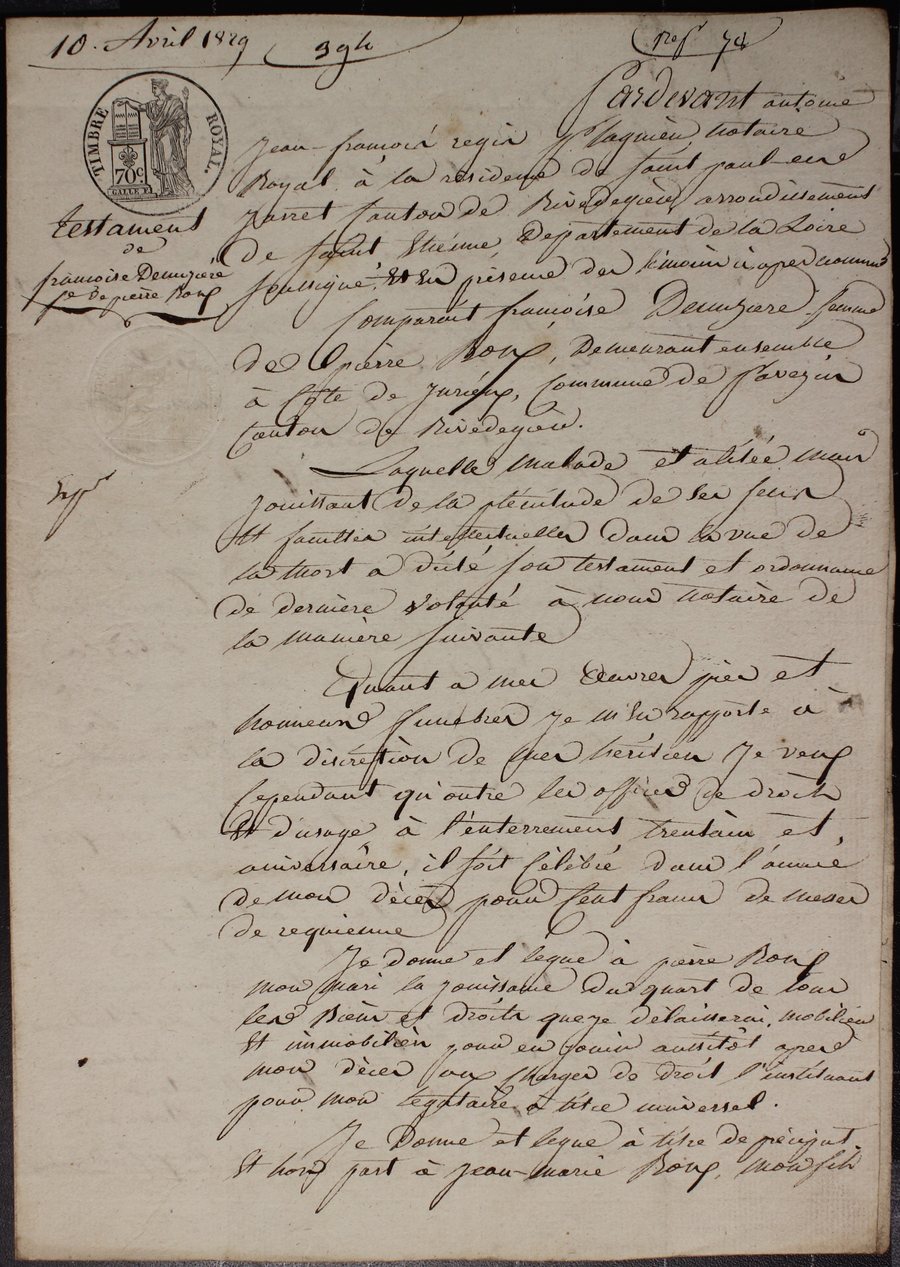 10. Avril 1829
394
nes 78
TIMBRE ROYAL.
70c
GALLE F.
testament
de
francoise Demuziere
fe de pierre Roux
Pardevant antoine
Jean-francois regis notaire
Royal à la résidence de saint paul-en
jarret Canton de Rivedegier, arrondissement
de saint Etienne Departement de la Loire
soussigné. Et En présence des témoins ci après nommés
Comparait françoise Demuziere femme
de pierre Roux, Demeurant ensemble
à Côte de jurieux, Commune de pavezin
Canton de Rivedegier.
Laquelle malade et alitée mais
jouissant de la plénitude de ses sens
Et facultés intellectuelles dans la vue de
la mort a dicté son testament et ordonnance
de derniere volonté à nous notaire de
la manière suivante
Quant a mes Œuvres pies et
honneurs funebres je m'en rapporte à
la discrétion de mes héritiers je veux
Cependant qu'outre les offices de droits
Et d'usage à l'enterrement trentain et
aniversaire, il soit Célébré dans l'année
de mon décès pour Cent francs de messes
de requienne
Je donne et legue à pierre Roux
mon mari la jouissance du quart de tous
les Biens et droits que je délaisserai, mobiliers
Et immobiliers pour en jouir aussitôt après
mon décès aux charges de droit l'instituant
pour mon légataire à titre universel.
Je Donne et legue à titre de préciput
Et hors part à jean-marie Roux, mon fils